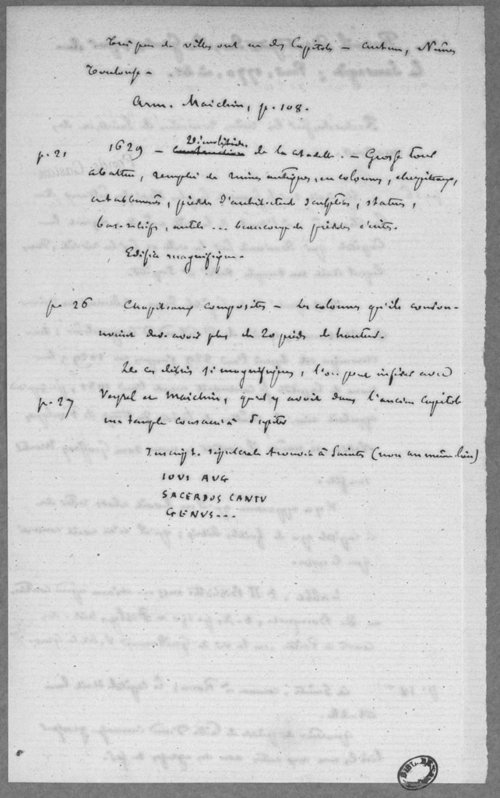 Très peu de villes ont eu des Capitoles – Autun, Nîmes
Toulouse –
Arm. Maichin, p. 108.
p. 21 1629 – Démolition de la citadelle. – Grosse tour
abattue, remplie de ruines antiques, en colonnes, chapiteaux,
entablements, pièces d'architecture sculptées, statues,
bas-reliefs, autels ... beaucoup de pierres écrites.
Edifice magnifique.
p. 26 Chapiteaux composites – les colonnes qu'ils couron-
naient dev. avoir plus de 20 pieds de hauteur.
De ces débris si magnifiques, l'on peut inférer avec
p. 27 Veyrel et Maichin, qu'il y avait dans l'ancien Capitole
un temple consacré à Jupiter
Inscript. sépulcrale trouvée à Saintes (non au même lieu)
IOVI AUG
SACERDOS CANTV
GENUS...